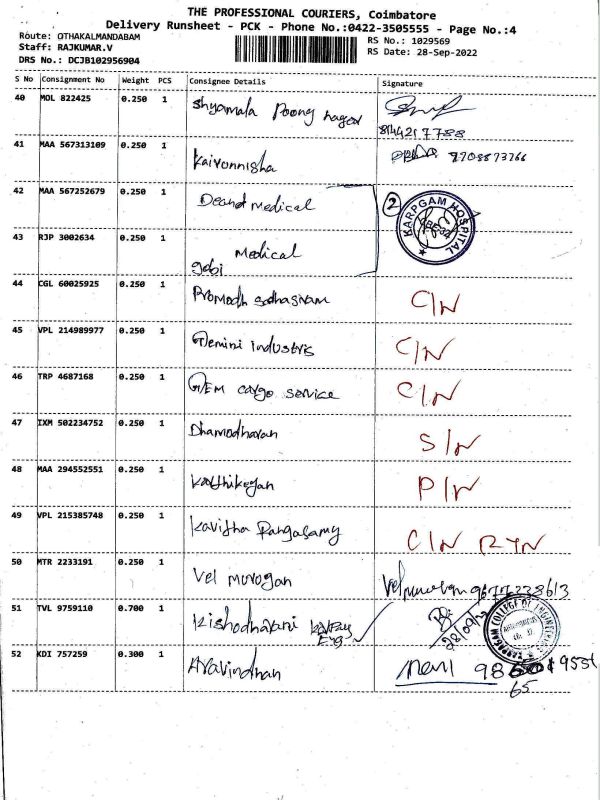 THE PROFESSIONAL COURIERS, Coimbatore
Delivery Runsheet - PCK - Phone No.:0422-3505555 - Page No.:4
Route: OTHAKALMANDABAM
RS No.: 1029569
Staff: RAJKUMAR.V
RS Date: 28-Sep-2022
DRS No.: DCJB102956904
S No Consignment No Weight PCS Consignee Details Signature
40 MOL 822425 0.250 1 Shyamala Poong nagar
8144217788
41 MAA 567313109 0.250 1 Kaivonnisha 7708873766
42 MAA 567252679 0.250 1 Deand medical 2
KARPGAM HOSPITAL
43 RJP 3002634 0.250 1 Medical
gobi
44 CGL 60025925 0.250 1 Promodh Sadhasivam C/N
45 VPL 214989977 0.250 1 Gemini industris C/N
46 TRP 4687168 0.250 1 GEM cargo service C/N
47 IXM 502234752 0.250 1 Dhamodharan S/N
48 MAA 294552551 0.250 1 Karthikeyan P/N
49 VPL 215385748 0.250 1 Kavitha Rangasamy C/N RTN
50 MTR 2233191 0.250 1 Vel murogan Velmurugan 9677238613
51 TVL 9759110 0.700 1 Kishodharani
28/09/22
KARPAGAM COLLEGE OF ENGINEERING
52 KDI 757259 0.300 1 Aravindhan Mani
65